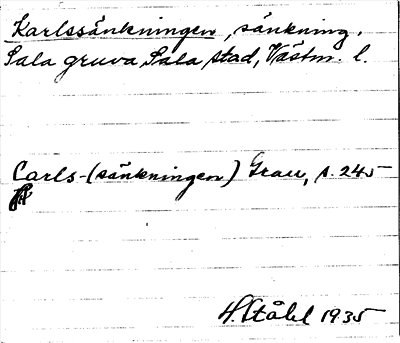 Karlssänkningen, sänkning.
Sala gruva Sala stad, Västm. l.
Carls-(sänkningen) Grau, s. 245
H. Ståhl 1935